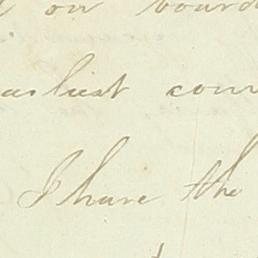 on board
earliest con
I have the